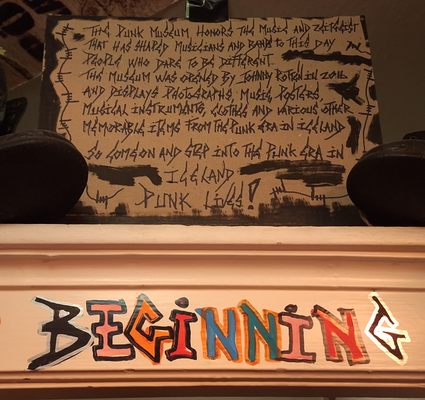 THE PUNK MUSEUM HONORS THE MUSIC AND ZEITGEIST
THAT HAS SHAPED MUSICIANS AND BANDS TO THIS DAY
PEOPLE WHO DARE TO BE DIFFERENT
THE MUSEUM WAS OPENED BY JOHNNY ROTTEN IN 2016
AND DISPLAYS PHOTOGRAPHS, MUSIC, POSTERS
MUSICAL INSTRUMENTS, CLOTHES AND VARIOUS OTHER
MEMORABLE ITEMS FROM THE PUNK ERA IN ICELAND
SO COME ON AND STEP INTO THE PUNK ERA IN
ICELAND
PUNK LIVES!
BEGINNING